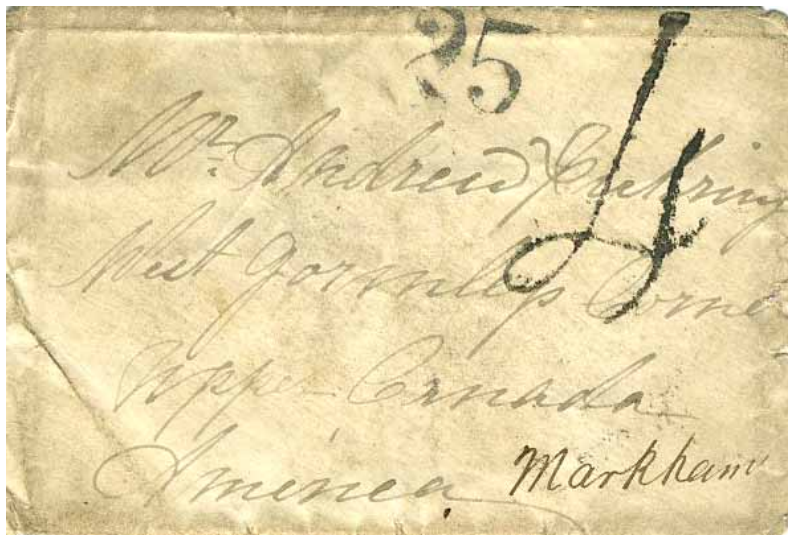 25 4
Mr. Andrew
West Gormleys Corne
Upper Canada
America Markham